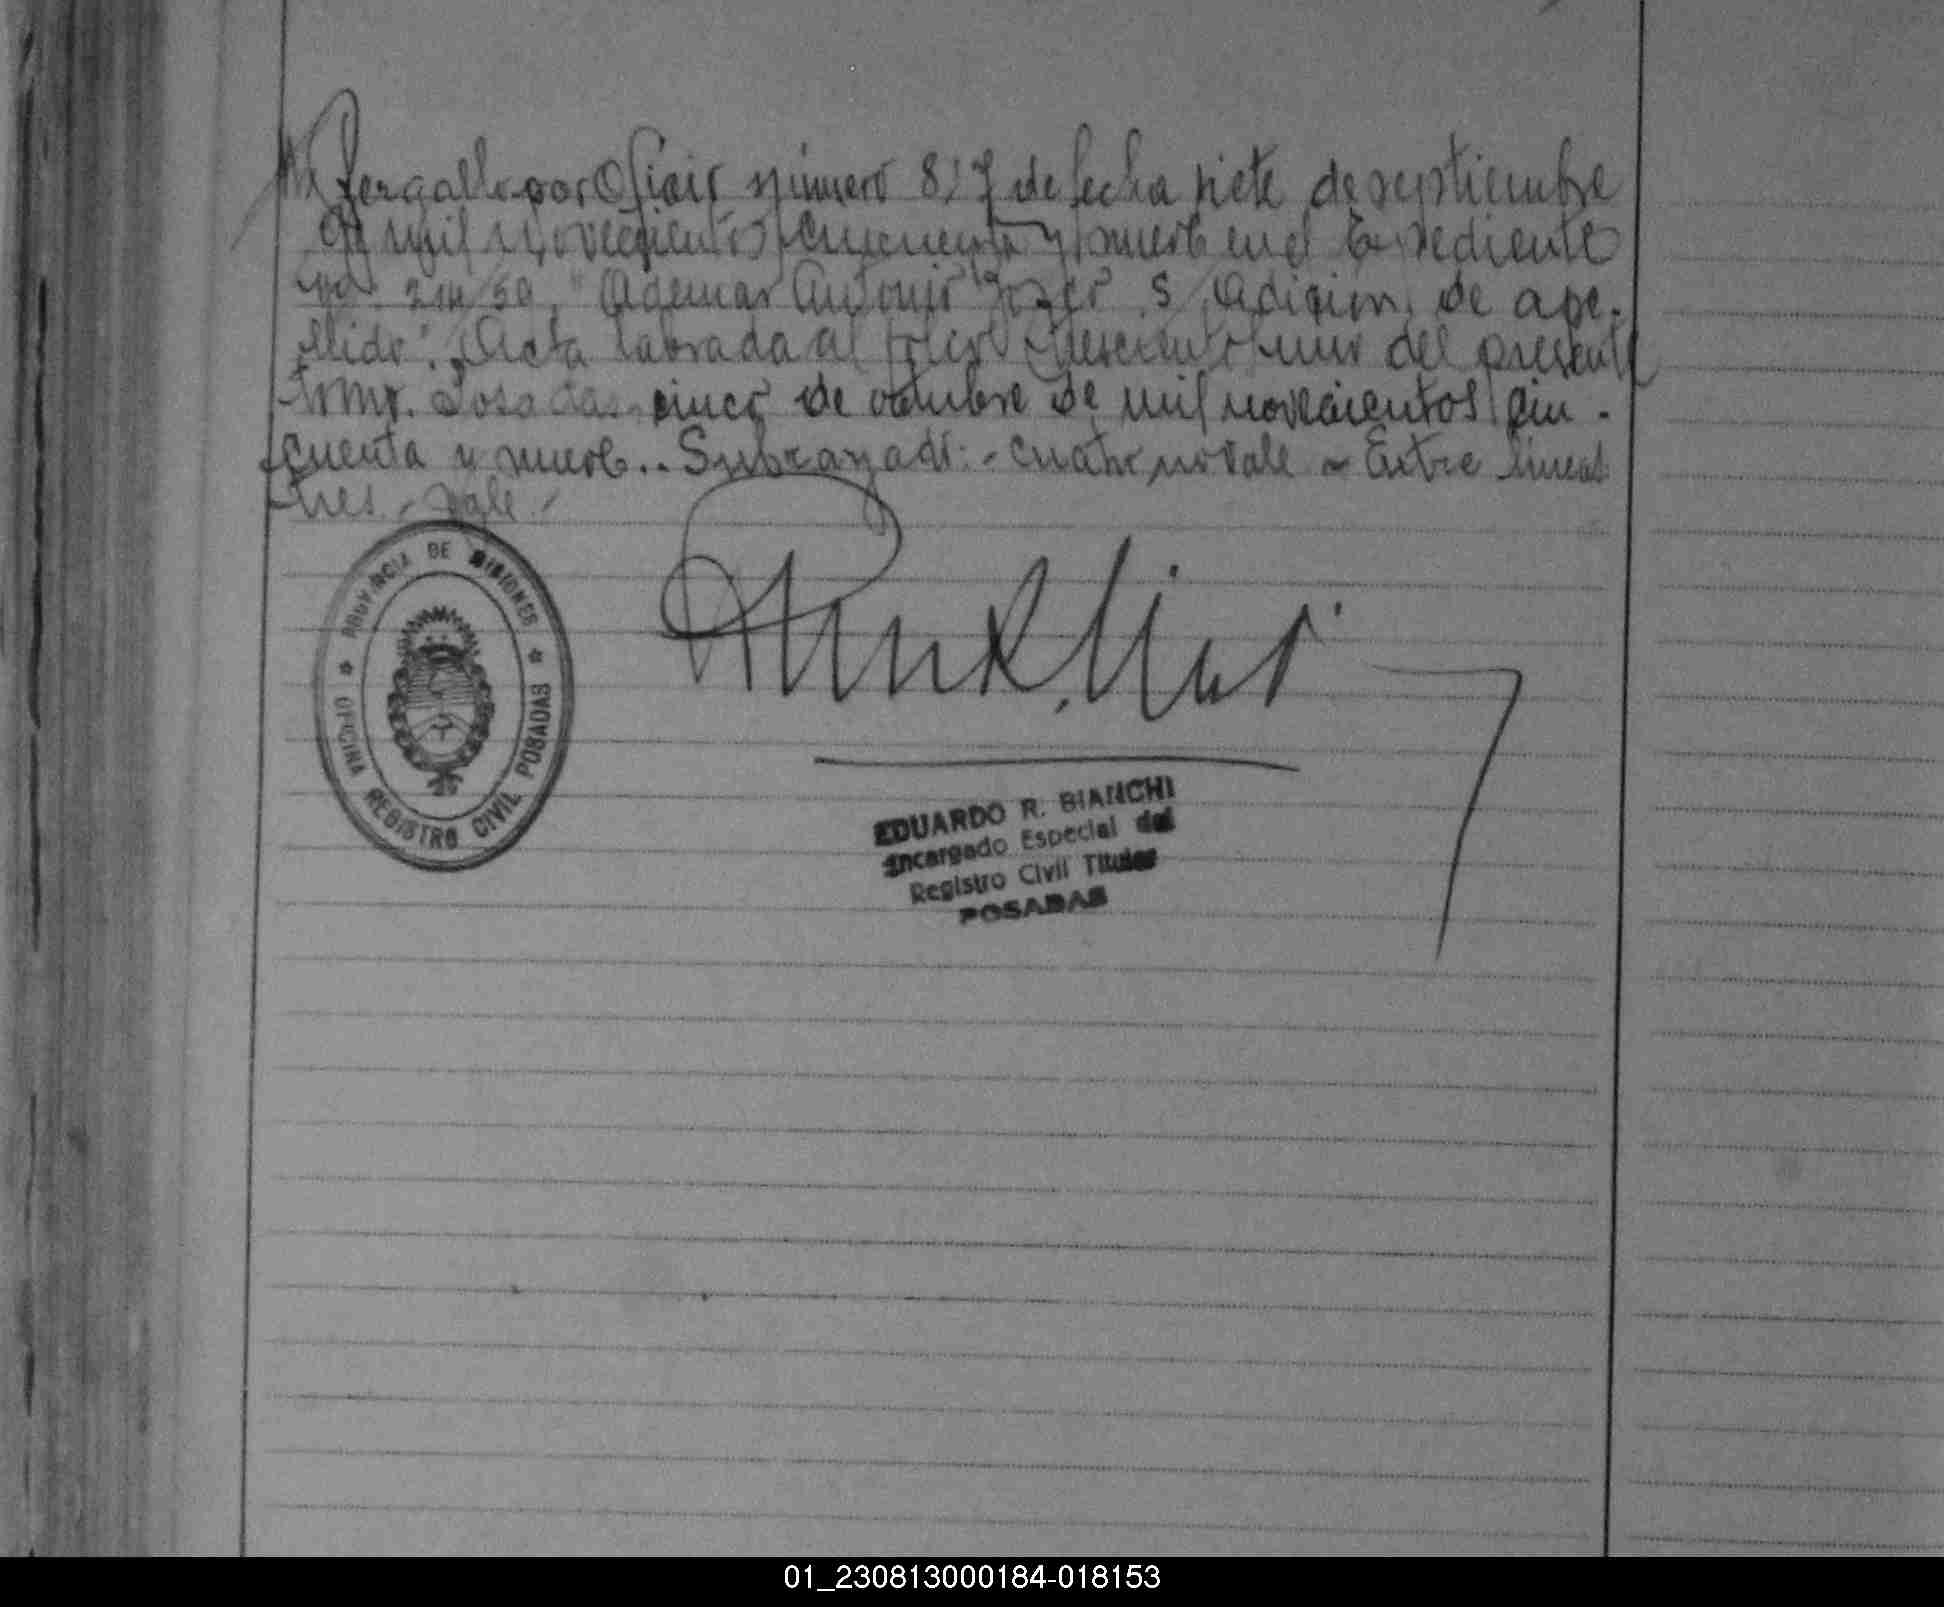 por Oficio número 827 de fecha siete de septiembre
de mil novecientos cincuenta y nueve en el Expediente
"Ademar Antonio s/ Adicion de ape-
llido". Acta labrada al folio uno del presente
tomo. Posadas cinco de octubre de mil novecientos cin-
cuenta y nueve.. Subrayado:- cuatro no vale - Entre lineas
tres - Vale -
PROVINCIA DE MISIONES
OFICINA REGISTRO CIVIL POSADAS
EDUARDO R. BIANCHI
Encargado Especial del
Registro Civil Titular
POSADAS
01_230813000184-018153